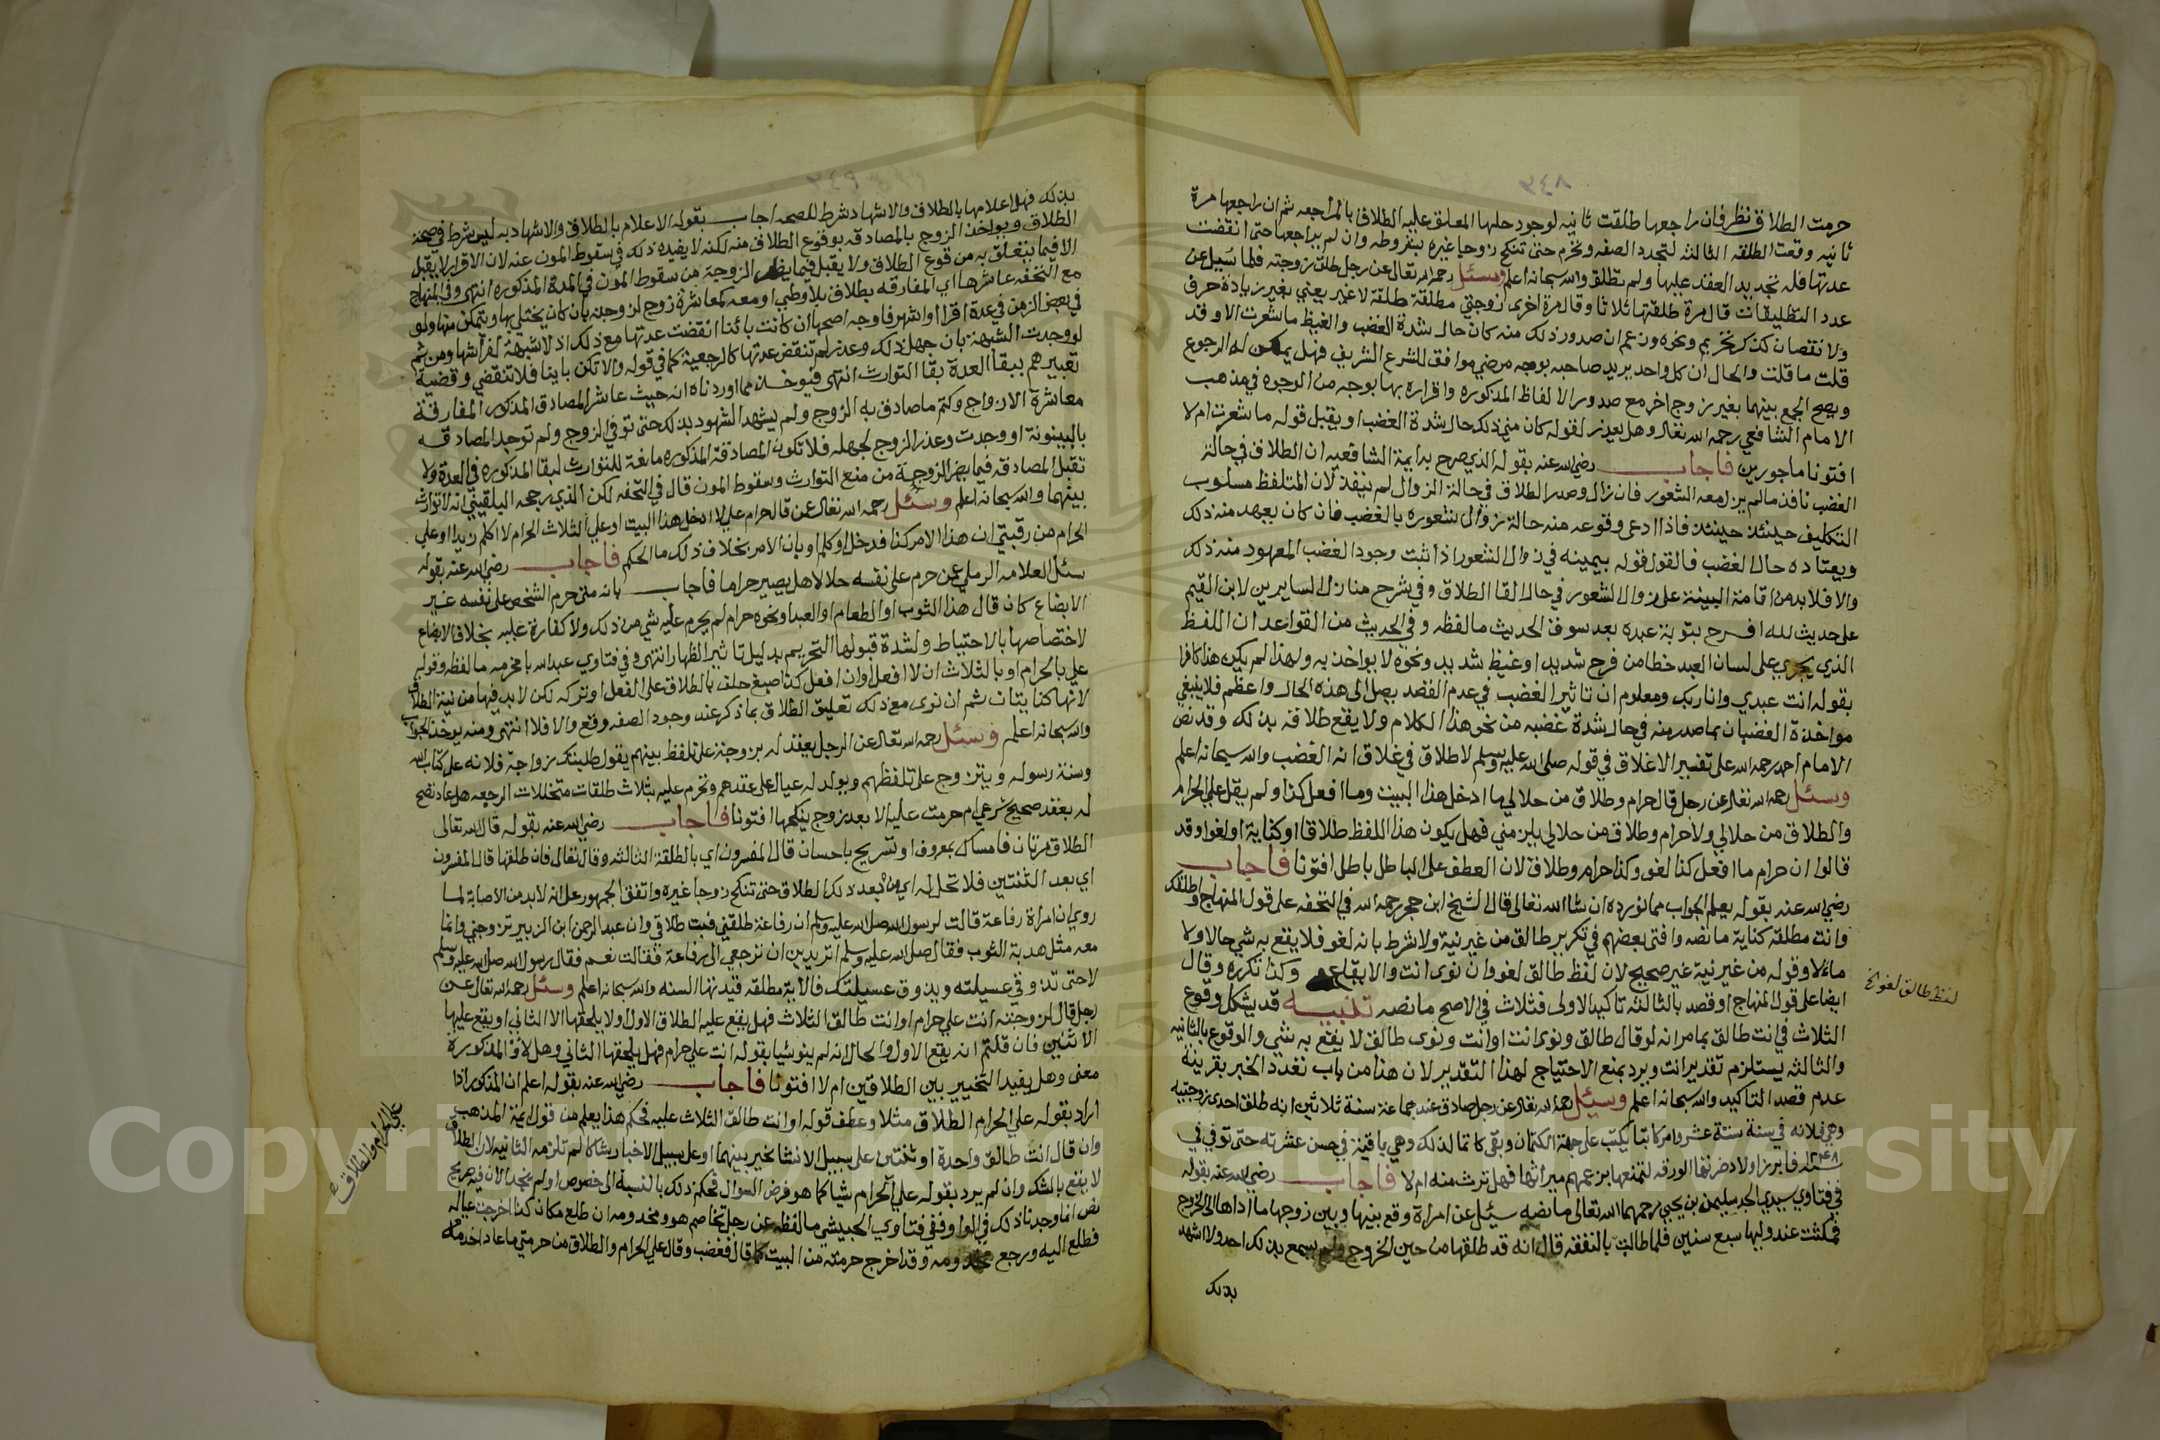 حرمت الطلاق نظر فان راجعها طلقت ثانيه لوجود حلها المعلق عليه الطلاق بالمراجعه ثم ان راجعها مرة
ثانيه وقعت الطلقه الثالثه لتجدد الصفه وتحرم حتى تنكح زوجا غيره بشروطه وان لم يراجعها حتى انقضت
عدتها فله تجديد العقد عليها ولم تطلق والله سبحانه اعلم وسئل رحمه الله تعالى عن رجل طلق زوجته فلما سئل عن
عدد التطليقات قال مرة طلقتها ثلاثا وقال مرة اخرى زوجتي مطلقة طلقة لا غير يعني بغير زيادة حرف
ولا نقصان كذكر تحريم ونحوه وزعم ان صدور ذلك منه كان حال شدة الغضب والغيظ ما شعرت الا وقد
قلت ما قلت والحال ان كل واحد يريد صاحبه بوجه مرضي موافق للشرع الشريف فهل يمكن له الرجوع
ويصح الجمع بينهما بغير زوج اخر مع صدور الالفاظ المذكوره واقراره بها بوجه من الوجوه في مذهب
الامام الشافعي رحمه الله تعالى وهل يعذر لقوله كان مني ذلك حال شدة الغضب او يقبل قوله ما شعرت ام لا
افتونا ماجورين فاجاب رضي الله عنه بقوله الذي صرح به ايمة الشافعيه ان الطلاق في حالة
الغضب نافذ مالم يزل معه الشعور فان زال وصدر الطلاق في حالة الزوال لم ينفذ لان المتلفظ مسلوب
التكليف حينئذ حينئذ فاذا ادعى وقوعه منه حالة زوال شعوره بالغضب فان كان يعهد منه ذلك
ويعتاده حال الغضب فالقول قوله بيمينه في زوال الشعور اذا ثبت وجود الغضب المعهود منه ذلك
والا فلا بد من اقامة البينة على زوال الشعور في حال القا الطلاق وفي شرح منازل السايرين لابن القيم
على حديث لله افرح بتوبة عبده بعد سوق الحديث ما لفظه وفي الحديث من القواعد ان اللفظ
الذي يجري على لسان العبد خطا من فرح شديد او غيظ شديد ونحوه لا يواخذ به ولهذا لم يكن هذا كافرا
بقوله انت عبدي وانا ربك ومعلوم ان تاثير الغضب في عدم القصد يصل الى هذه الحال واعظم فلا ينبغي
مواخذة الغضبان بما صدر منه في حال شدة غضبه من نحو هذا الكلام ولا يقع طلاقه بذلك وقد نص
الامام احمد رحمه الله على تفسير الاغلاق في قوله صلى الله عليه وسلم لا طلاق في غلاق انه الغضب والله سبحانه اعلم
وسئل رحمه الله تعالى عن رجل قال حرام وطلاق من حلالي ما ادخل هذا البيت وما افعل كذا ولم يقل علي الحرام
والطلاق من حلالي ولا حرام وطلاق من حلالي باين مني فهل يكون هذا اللفظ طلاقا او كناية او لغوا وقد
قالوا ان حرام ما افعل كذا لغو وكذا حرام وطلاق لان العطف على الباطل باطل افتونا فاجاب
رضي الله عنه بقوله يعلم الجواب مما نورده ان شا الله تعالى قال الشيخ ابن حجر رحمه الله في التحفه على قول المنهاج واطلقتك
وانت مطلقة كناية ما نصه وافتى بعضهم في تكرير طالق من غير نية ولا شرط بانه لغو فلا يقع به شي حالا ولا
مآلا وقوله من غير نية غير صحيح لان لفظ طالق لغو وان نوى انت والايقاع وكذا تكرره وقال
ايضا على قول المنهاج او قصد بالثالثة تاكيد الاولى فثلاث في الاصح ما نصه تنبيه قد يشكل وقوع
الثلاث في انت طالق بما مر انه لو قال طالق ونوى انت او انت ونوى طالق لا يقع به شي والوقوع بالثانيه
والثالثه يستلزم تقدير انت ويرد بمنع الاحتياج لهذا التقدير لان هذا من باب تعدد الخبر بقرينة
عدم قصد التاكيد والله سبحانه اعلم وسئل رحمه الله تعالى عن رجل صادق عند جماعة سنة ثلاثين انه طلق احدى زوجتيه
وهي فلانه في سنة ستة عشر وامر كاتبا يكتب على جهة الكتمان وبقي كاتما لذلك وهي باقية في حسن عشرته حتى توفي في
سنة ١٢٤٨ فابرز اولاد ضرتها الورقه لتمنعها بزعمهم ميراثها فهل ترث منه ام لا فاجاب رضي الله عنه بقوله
في فتاوي سيدي الجد سليمن بن يحيى رحمهما الله تعالى ما نصه سئل عن امراة وقع بينها وبين زوجها ما اداها الى الخروج
فمكثت عند وليها سبع سنين فلما طالبت بالنفقه قال انه قد طلقها من حين الخروج ولم يسمع بذلك احد ولا اشهد
بذلك
لفظ طالق لغو الخ
بذلك فهل اعلامها بالطلاق والاشهاد شرط للصحه اجاب بقوله الاعلام بالطلاق والاشهاد به ليس شرط في صحة
الطلاق ويواخذ الزوج بالمصادقه بوقوع الطلاق منه لكنه لا يفيده ذلك في سقوط المون عنه لان الاقرار لا يقبل
الا فيما يتعلق به من وقوع الطلاق ولا يقبل فيما يضر الزوجة من سقوط المون في المدة المذكوره انتهى وفي المنهاج
مع التحفه عاشرها اي المفارقه بطلاق بلا وطي او معه كمعاشرة زوج لزوجته بان كان يختلي بها ويتمكن منها ولو
في بعض الزمن في عدة اقرا او اشهر فاوجه اصحها ان كانت باينا انقضت عدتها مع ذلك اذ لا شبهة لفراشها ومن ثم
لو وجدت الشبهة بان جهل ذلك وعذر لم تنقض عدتها كالرجعية كما في قوله والا تكن باينا فلا تنقضي وقضية
تعبيرهم ببقا العدة بقا التوارث انتهى فيوخذ مما اوردناه انه حيث عاشر المصادق المذكور المفارقة
معاشرة الازواج وكتم ما صادق به الزوج ولم يشهد الشهود بذلك حتى توفي الزوج ولم توجد المصادقه
بالبينونة او وجدت وعذر الزوج لجهله فلا تكون المصادقة المذكوره مانعة للتوارث لبقا المذكوره في العدة ولا
تقبل المصادقه فيما يضر الزوجة من منع التوارث وسقوط المون قال في التحفه لكن الذي رجحه البلقيني انه لا توارث
بينهما والله سبحانه اعلم وسئل رحمه الله تعالى عن قال حرام علي لا ادخل هذا البيت او علي الثلاث الحرام لا اكلم زيدا او علي
الحرام من رقبتي ان هذا الامر كذا فدخل او كلم او بان الامر بخلاف ذلك ما الحكم فاجاب رضي الله عنه بقوله
سئل العلامه الرملي عن حرم على نفسه حلالا هل يصير حراما فاجاب بانه متى حرم الشخص على نفسه غير
الابضاع كان قال هذا الثوب او الطعام او العبد او نحوه حرام لم يحرم عليه شي من ذلك ولا كفارة عليه بخلاف الابضاع
لاختصاصها بالاحتياط ولشدة قبولها التحريم بدليل تاثير الظهار انتهى وفي فتاوي عبد الله بامخرمه ما لفظه وقوله
علي بالحرام او بالثلاث ان لا افعل او ان افعل كذا صيغ حلف بالطلاق على الفعل او تركه لكن لا بد فيها من نية الطلاق
لانها كنايات ثم ان نوى مع ذلك تعليق الطلاق بما ذكر عند وجود الصفه وقع والا فلا انتهى ومنه يوخذ الجواب
والله سبحانه اعلم وسئل رحمه الله تعالى عن الرجل يعقد له بزوجة على تلفظ بينهم يقول طلبتك زواجة فلانه على كتاب الله
وسنة رسوله ويتزوج على تلفظهم ويولد له عيال على عقدهم وتحرم عليه بثلاث طلقات متخللات الرجعه هل عاد تصح
له بعقد صحيح شرعي ام حرمت عليه الا بعد زوج ينكحها افتونا فاجاب رضي الله عنه بقوله قال الله تعالى
الطلاق مرتان فامساك بمعروف او تسريح باحسان قال المفسرون اي بالطلقة الثالثه وقال تعالى فان طلقها قال المفسرون
اي بعد الثنتين فلا تحل له اي من بعد ذلك الطلاق حتى تنكح زوجا غيره واتفق الجمهور على انه لا بد من الاصابة لما
روي ان امراة رفاعة قالت لرسول الله صلى الله عليه وسلم ان رفاعة طلقني فبت طلاقي وان عبد الرحمن ابن الزبير تزوجني وانما
معه مثل هدبة الثوب فقال صلى الله عليه وسلم اتريدين ان ترجعي الى رفاعة فقالت نعم فقال رسول الله صلى الله عليه وسلم
لا حتى تذوقي عسيلته ويذوق عسيلتك فالاية مطلقه قيدتها السنه والله سبحانه اعلم وسئل رحمه الله تعالى عن
رجل قال لزوجته انت علي حرام او انت طالق الثلاث فهل يقع عليه الطلاق الاول ولا يلحقها الا الثاني او يقع عليها
الاثنين فان قلتم انه يقع الاول والحال انه لم ينو شيا بقوله انت علي حرام فهل يلحقها الثاني وهل لاو المذكورة
معنى وهل يفيد التخيير بين الطلاقين ام لا افتونا فاجاب رضي الله عنه بقوله اعلم ان المذكور اذا
اراد بقوله علي الحرام الطلاق مثلا وعطف قوله او انت طالق الثلاث عليه فحكم هذا يعلم من قول ايمة المذهب
وان قال انت طالق واحدة او ثنتين على سبيل الانشا تخير بينهما او على سبيل الاخبار بشاكا لم تلزمه الثانيه لان الطلاق
لا يقع بالشك وان لم يرد بقوله علي الحرام شيا كما هو فرض السوال فحكم ذلك بالنسبة الى خصوص او لم نجد الان فيه صريح
نص انما وجدنا ذلك في الواو ففي فتاوي الحبيشي ما لفظه عن رجل تخاصم هو ومخدومه ان طلع مكان كذا اخرجت عياله
فطلع اليه ورجع مخدومه وقد اخرج حرمته من البيت كما قال فغضب وقال علي الحرام والطلاق من حرمتي ما عاد اخدمه
علي الحرام والطلاق الخ
Copyright © King Saud University